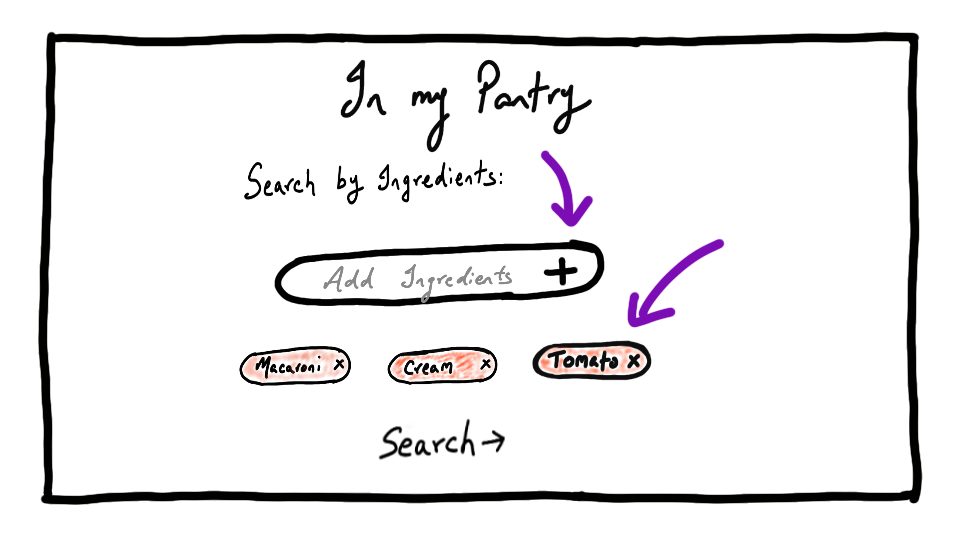 In my Pantry
Search by Ingredients:
Add Ingredients +
Macaroni x Cream x Tomato x
Search →